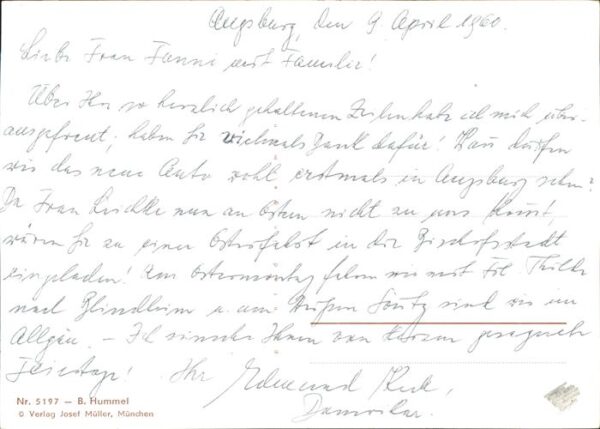 Augsburg, den 9 April 1960.
Liebe Frau Fanni mit Familie!
Über Ihre so herzlich gehaltenen Zeilen habe ich mich über-
aus gefreut, haben Sie vielmals Dank dafür! Wann dürfen
wir das neue Auto wohl erstmals in Augsburg sehn?
Da Frau nun an Ostern nicht zu uns kommt,
wären Sie zu einer Osterfahrt in die Bischofsstadt
eingeladen! Am Ostermontag fahren wir mit Frl. Thilde
nach Blindheim u. am Weißen Sonntag sind wir im
Allgäu. – Ich wünsche Ihnen von Herzen gesegnete
Feiertage! Ihr Edmund
Nr. 5197 — B. Hummel
© Verlag Josef Müller, München